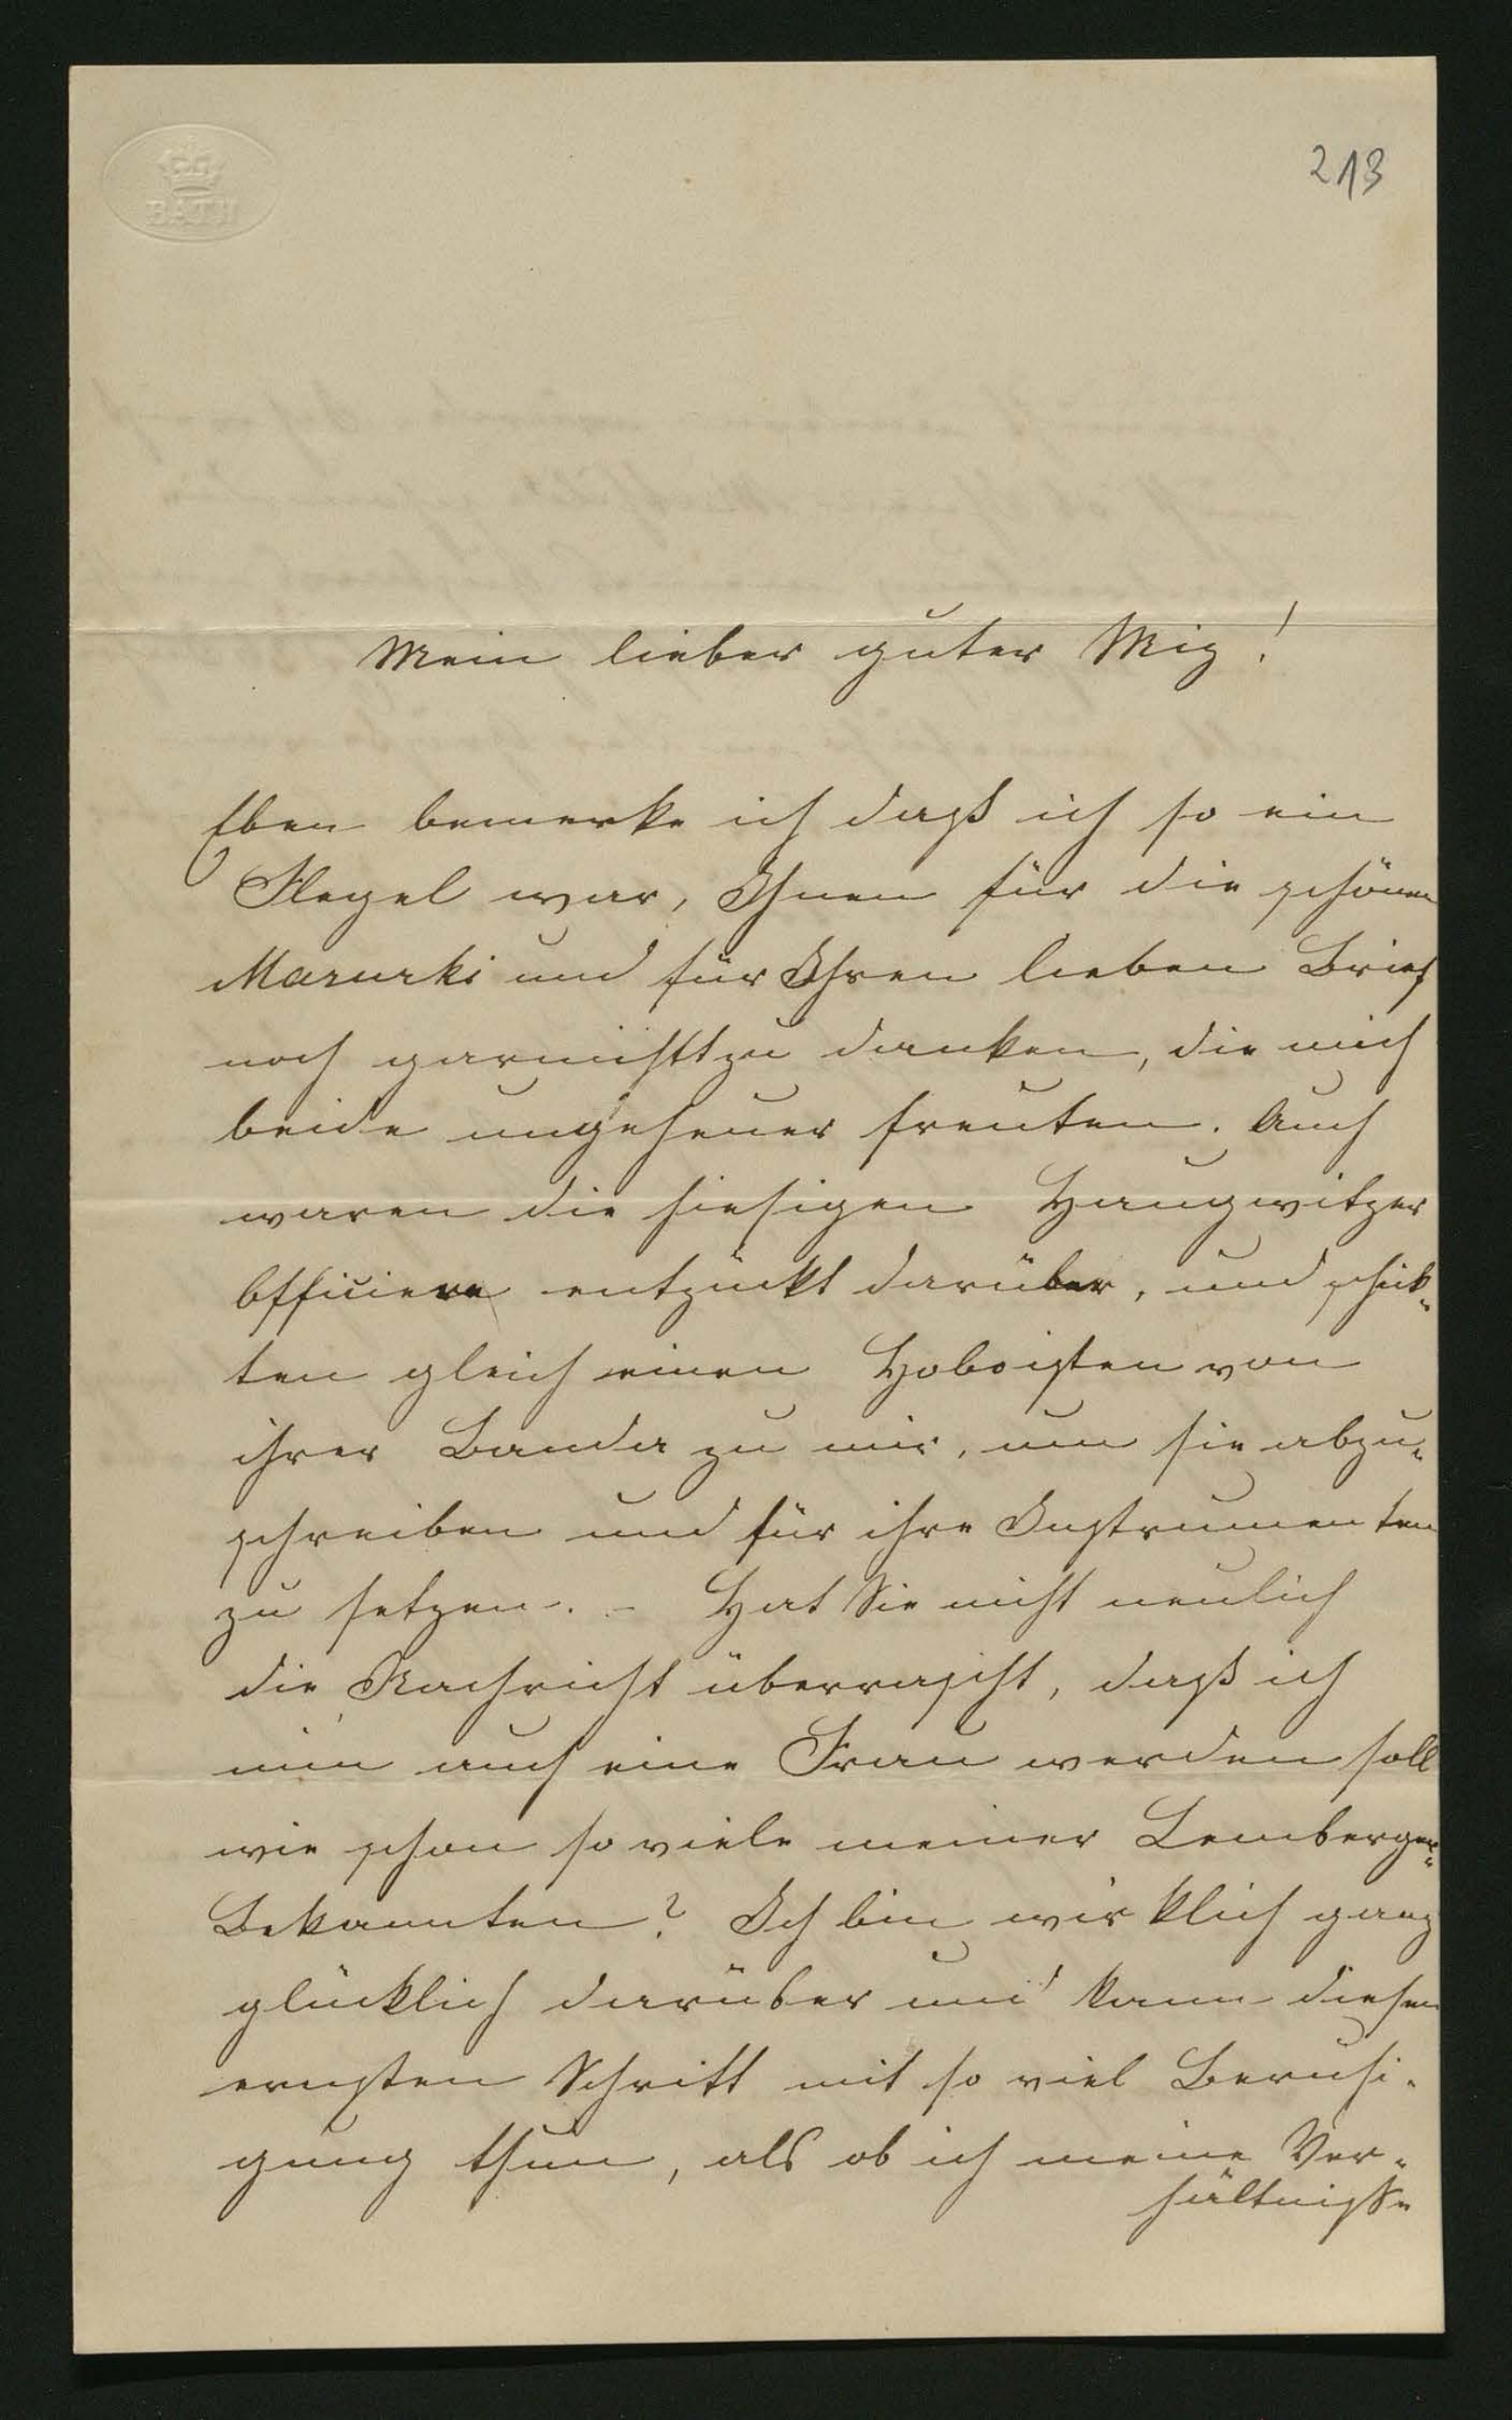 BATH
213
Mein lieber guter Mig!
Eben bemerke ich daß ich so ein
Flegel war, Ihnen für die schönen
Mazurki und für Ihren lieben Brief
noch garnicht zu danken, die mich
beide ungeheuer freuten. Auch
waren die hiesigen Haugwitzer
Officiere entzückt darüber, und schik-
ten gleich einen Hoboisten von
ihrer Banda zu mir, um sie abzu-
schreiben und für ihre Instrumenten
zu setzen. – Hat Sie nicht neulich
die Nachricht überrascht, daß ich
nun auch eine Frau werden soll
wie schon so viele meiner Lemberger-
Bekannten? Ich bin wirklich ganz
glücklich darüber und kann diesen
ernsten Schritt mit so viel Beruhi-
gung thun, als ob ich meine Ver-
hältnisse